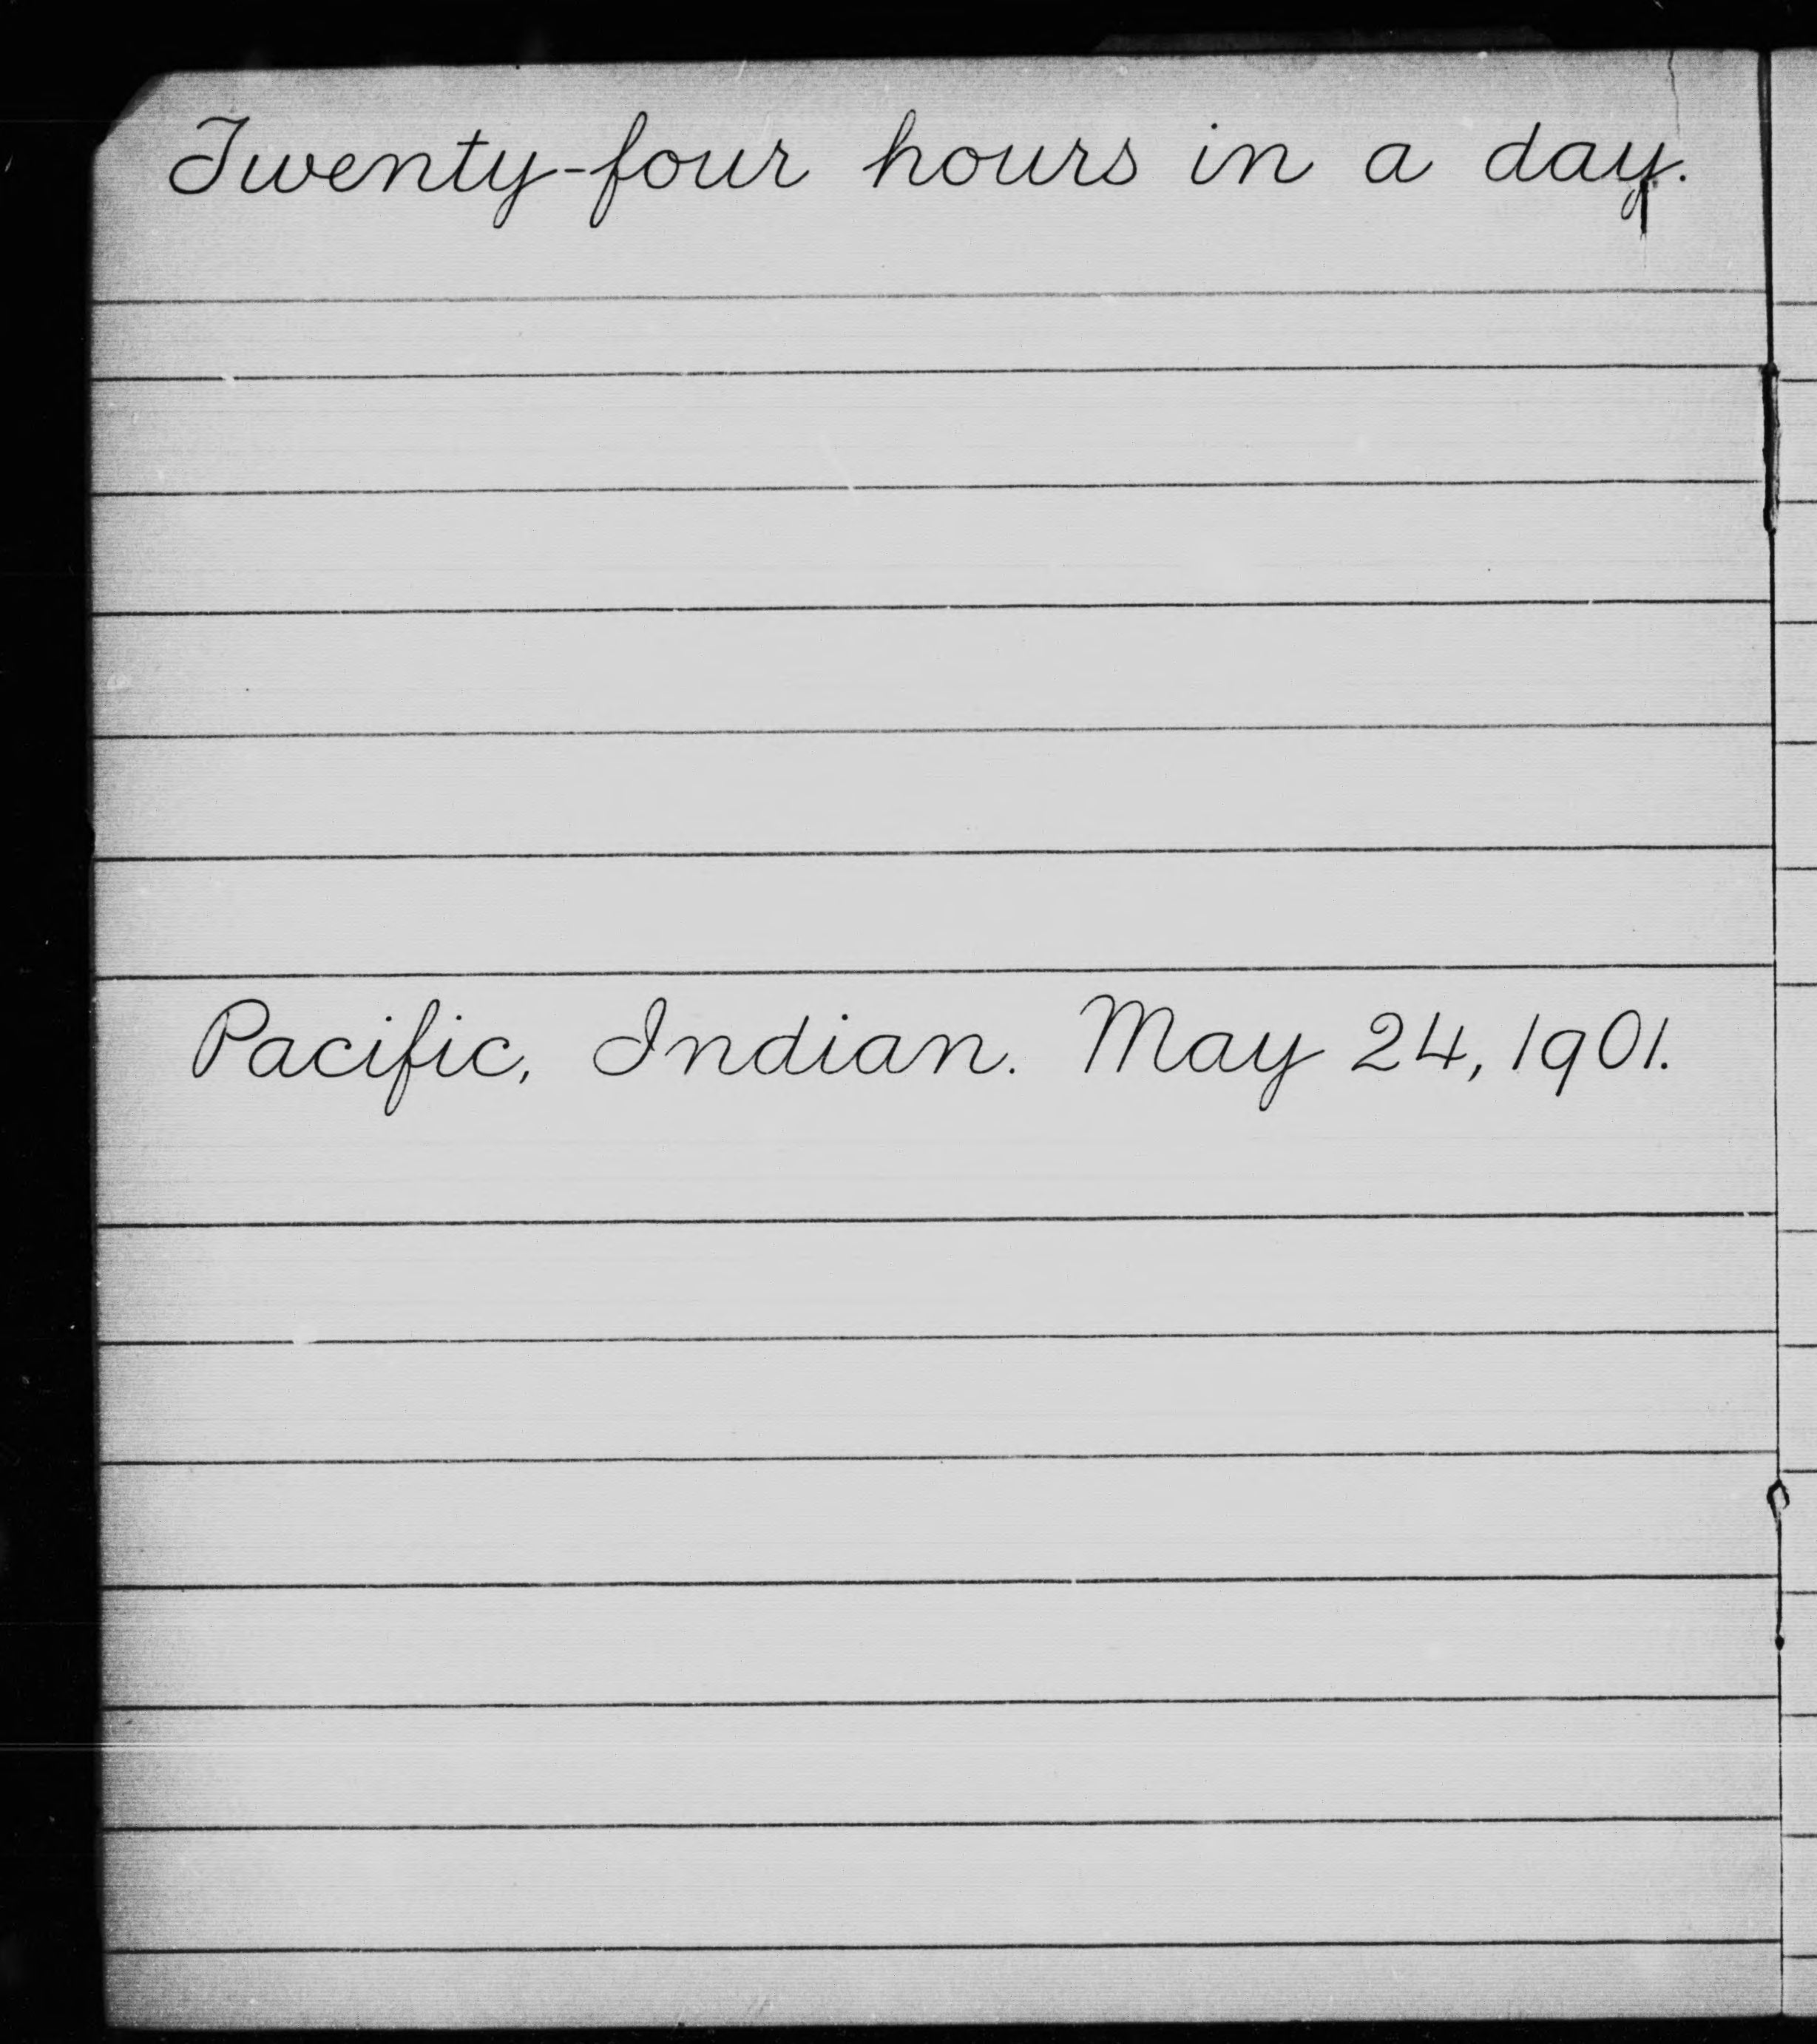 Twenty-four hours in a day.
Pacific, Indian. May 24, 1901.